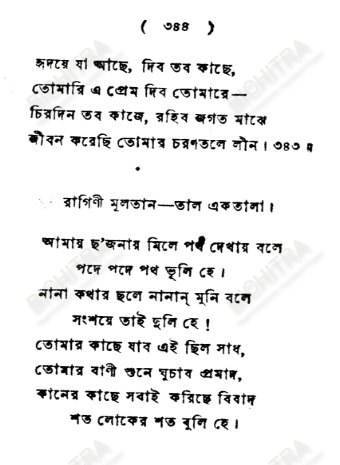 ( ৩৪৪ )
হৃদয়ে যা আছে, দিব তব কাছে,
তোমারি এ প্রেম দিব তোমারে—
চিরদিন তব কাজে, রহিব জগত মাঝে
জীবন করেছি তোমার চরণতলে লীন। ৩৪৩॥
রাগিণী মূলতান—তাল একতালা।
আমায় ছ'জনায় মিলে পথ দেখায় বলে
পদে পদে পথ ভূলি হে।
নানা কথার ছলে নানান্ মুনি বলে
সংশয়ে তাই দুলি হে!
তোমার কাছে যাব এই ছিল সাধ,
তোমার বাণী শুনে ঘুচাব প্রমাদ,
কানের কাছে সবাই করিছে বিবাদ
শত লোকের শত বুলি হে।